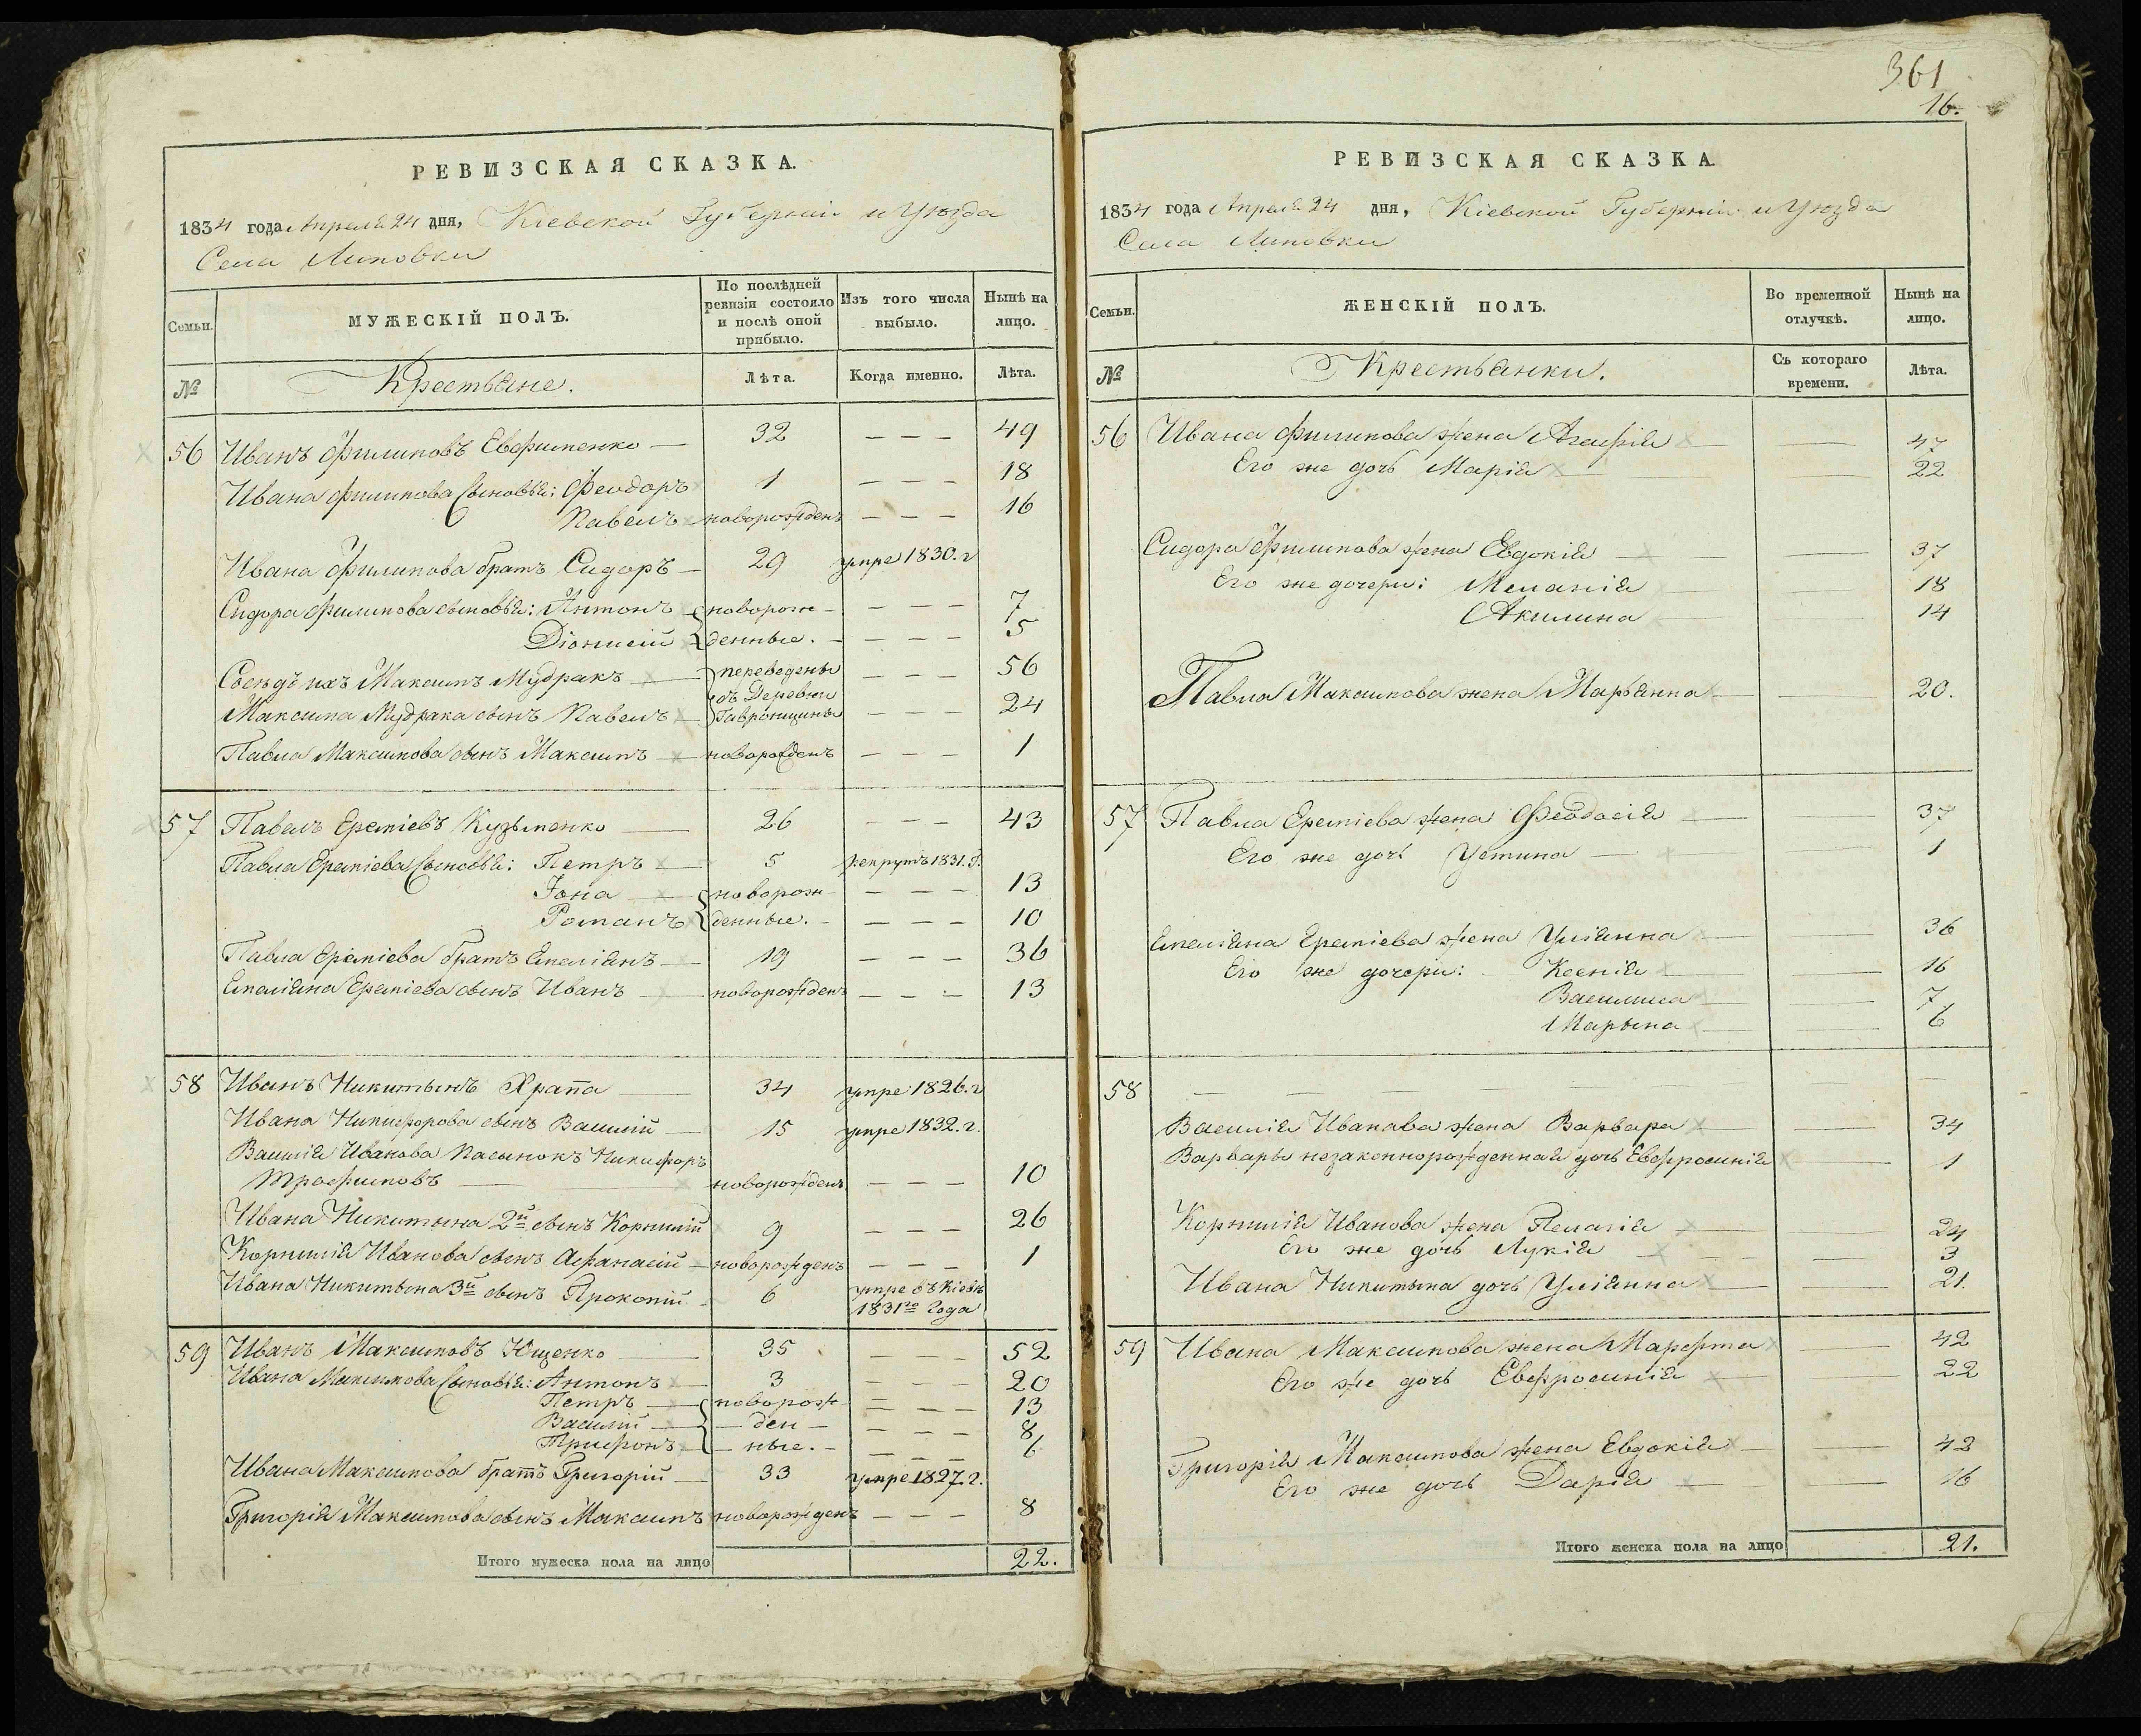 РЕВИЗСКАЯ СКАЗКА.
1834 года Апреля 24 дня, Кіевской Губерніи и Уѣзда
Села Липовки
Семьи.
МУЖЕСКІЙ ПОЛЪ.
По послѣдней ревизіи состояло и послѣ оной прибыло.
Изъ того числа выбыло.
Нынѣ на лицо.
№
Крестьяне.
Лѣта.
Когда именно.
Лѣта.
56 Иванъ Филиповъ Евфименко — 32 — — — 49
Ивана Филипова Сыновья: Феодоръ 1 — — — 18
Павелъ новорожденъ — — — 16
Ивана Филипова братъ Сидоръ — 29 умре 1830. г
Сидора Филипова сыновья: Антонъ новорож- — — — 7
Діонисій денные. — — — — 5
Сосѣдъ ихъ Максимъ Мудракъ — переведены — — — 56
съ Деревни
Максима Мудрака сынъ Павелъ — Гавронщины — — — 24
Павла Максимова сынъ Максимъ — новорожденъ — — — 1
57 Павелъ Ереміевъ Кузьменко — 26 — — — 43
Павла Ереміева Сыновья: Петръ — 5 рекрутъ 1831. г.
Іона — новорож- — — — 13
Романъ денные. — — — — 10
Павла Ереміева братъ Емеліянъ — 19 — — — 36
Емеліяна Ереміева сынъ Иванъ — новорожденъ — — — 13
58 Иванъ Никитынъ Храпа — 34 умре 1826. г
Ивана Никифорова сынъ Василій — 15 умре 1832. г.
Василія Иванова пасынокъ Никифоръ
Трофимовъ — новорожденъ — — — 10
Ивана Никитына 2й сынъ Корнилій 9 — — — 26
Корнилія Иванова сынъ Афанасій — новорожденъ — — — 1
Ивана Никитына 3й сынъ Прокопій — 6 умре въ Кіевѣ
1831го года
59 Иванъ Максимовъ Ющенко — 35 — — — 52
Ивана Максимова Сыновья: Антонъ — 3 — — — 20
Петръ — новорож- — — — 13
Василій — — ден — — — — 8
Трифонъ — — ные. — — — — 6
Ивана Максимова братъ Григорій — 33 умре 1827. г.
Григорія Максимова сынъ Максимъ новорожденъ — — — 8
Итого мужеска пола на лицо 22.
361
16.
РЕВИЗСКАЯ СКАЗКА.
1834 года Апреля 24 дня, Кіевской Губерніи и Уѣзда
Села Липовки
Семьи.
ЖЕНСКІЙ ПОЛЪ.
Во временной отлучкѣ.
Нынѣ на лицо.
№
Крестьянки.
Съ котораго времени.
Лѣта.
56 Ивана Филипова жена Агафія — — 47
Его же дочь Марія — — 22
Сидора Филипова жена Евдокія — — 37
Его же дочери: Меланія — — 18
Акилина — — 14
Павла Максимова жена Марьянна — — 20.
57 Павла Ереміева жена Феодосія — — 37
Его же дочь Устина — — 1
Емеліяна Ереміева жена Уліянна — — 36
Его же дочери: Ксенія — — 16
Василиса — — 7
Марьина — — 6
58 — — — — — —
Василія Иванова жена Варвара — — 34
Варвары незаконнорожденная дочь Евфросинія — 1
Корнилія Иванова жена Пелагія — — 24
Его же дочь Лукія — — 3
Ивана Никитына дочь Уліянна — — 21.
59 Ивана Максимова жена Марфта — 42
Его же дочь Евфросинія — — 22
Григорія Максимова жена Евдокія — — 42
Его же дочь Дарія — — 16
Итого женска пола на лицо 21.